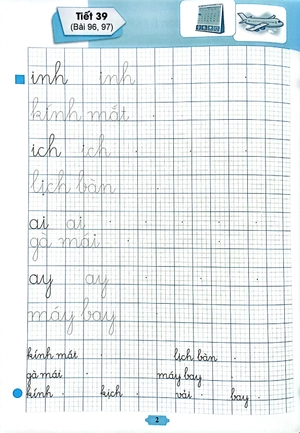 Tiết 39
(Bài 96, 97)
inh inh
kính mắt
ich ich
lịch bàn
ai ai
gà mái
ay ay
máy bay
kính mát lịch bàn
gà mái máy bay
kính kịch vải bay
2